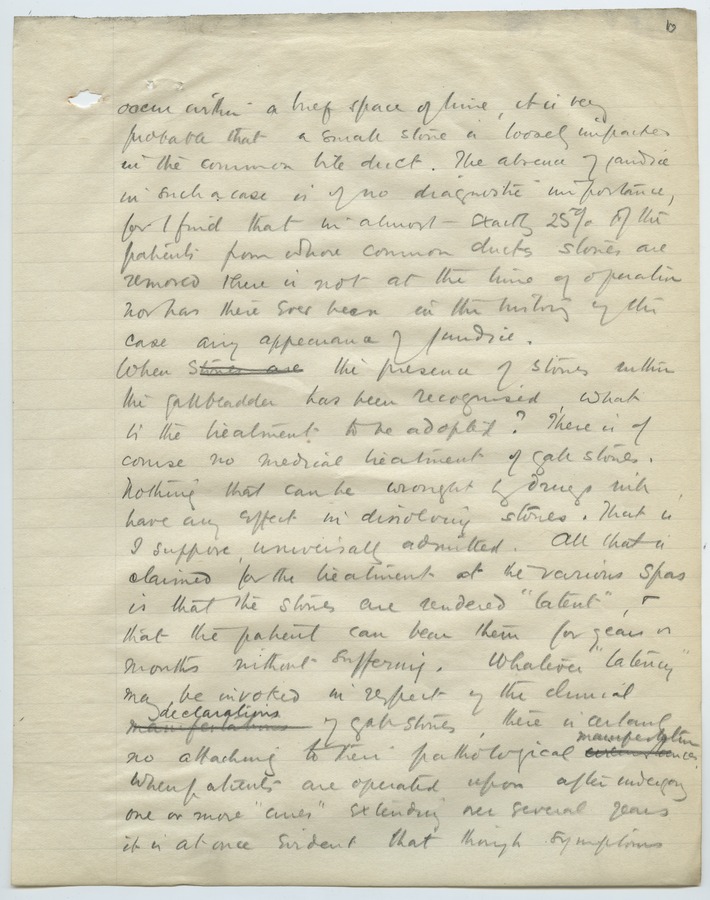 occur within a brief space of time, it is very
probable that a small stone is loosely impacted
in the common bile duct. The absence of jaundice
in such a case is of no diagnostic importance,
for I find that in almost exactly 25% of the
patients from whose common ducts stones are
removed there is not at the time of operation
nor has there ever been in the history of the
case any appearance of jaundice.
When stones are the presence of stones within
the gallbladder has been recognised, what
is the treatment to be adopted? There is of
course no medical treatment of gall stones.
Nothing that can be wrought by drugs will
have any effect in dissolving stones. That is
I suppose, universally admitted. All that is
claimed for the treatment at the various Spas
is that the stones are rendered "latent", +
that the patient can bear them for years or
months without suffering. Whatever "latency"
may be invoked in respect of the clinical
declarations
manifestations of gall stones, there is certainly
manifestation
no attaching to their pathological
When patients are operated upon after undergoing
one or more "cures" extending over several years
it is at once evident that though symptoms